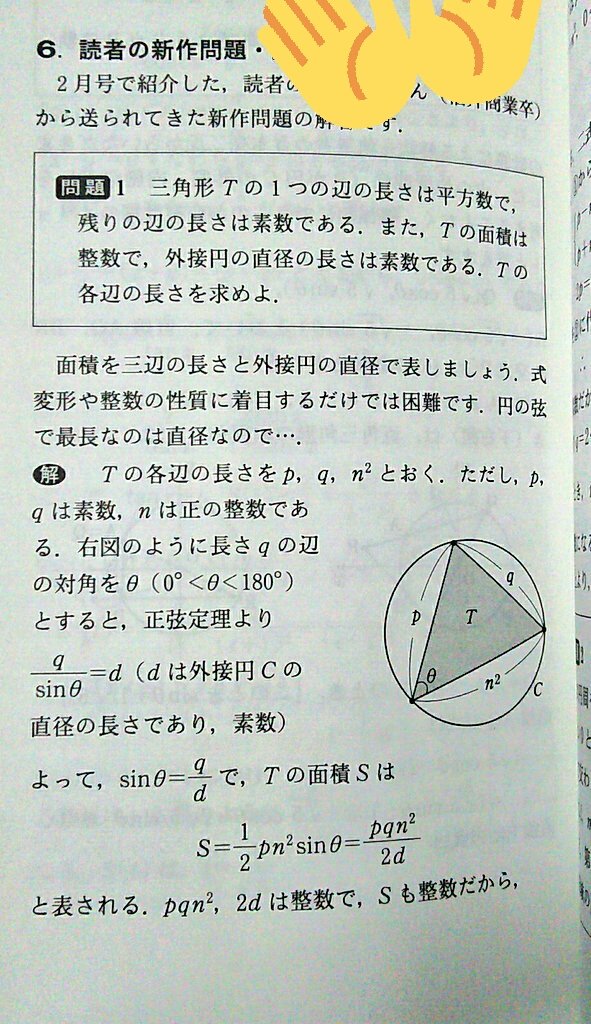 6. 読者の新作問題・
2月号で紹介した，読者の
ん（ 商業卒）
から送られてきた新作問題の解答です．
問題1 三角形Tの1つの辺の長さは平方数で，
残りの辺の長さは素数である．また，Tの面積は
整数で，外接円の直径の長さは素数である．Tの
各辺の長さを求めよ．
面積を三辺の長さと外接円の直径で表しましょう．式
変形や整数の性質に着目するだけでは困難です．円の弦
で最長なのは直径なので…．
解 Tの各辺の長さをp，q，n²とおく．ただし，p，
qは素数，nは正の整数であ
る．右図のように長さqの辺
の対角をθ（0°<θ<180°）
とすると，正弦定理より
q/sinθ=d（dは外接円Cの
直径の長さであり，素数）
よって，sinθ=q/dで，Tの面積Sは
S=1/2pn²sinθ=pqn²/2d
と表される．pqn²，2dは整数で，Sも整数だから，
p
q
T
θ
n²
C